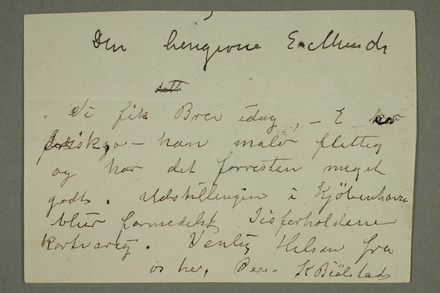 Den hengivne E. Munch
Vi fik Brev idag, – E
friskga – han maler flittig
og har det forresten meget
godt. Udstillingen i Kjöbenhavn
blir formedelst Iisforholdene
kortvarig. Venlig Hilsen fra
os he. Deres K Bjölstad